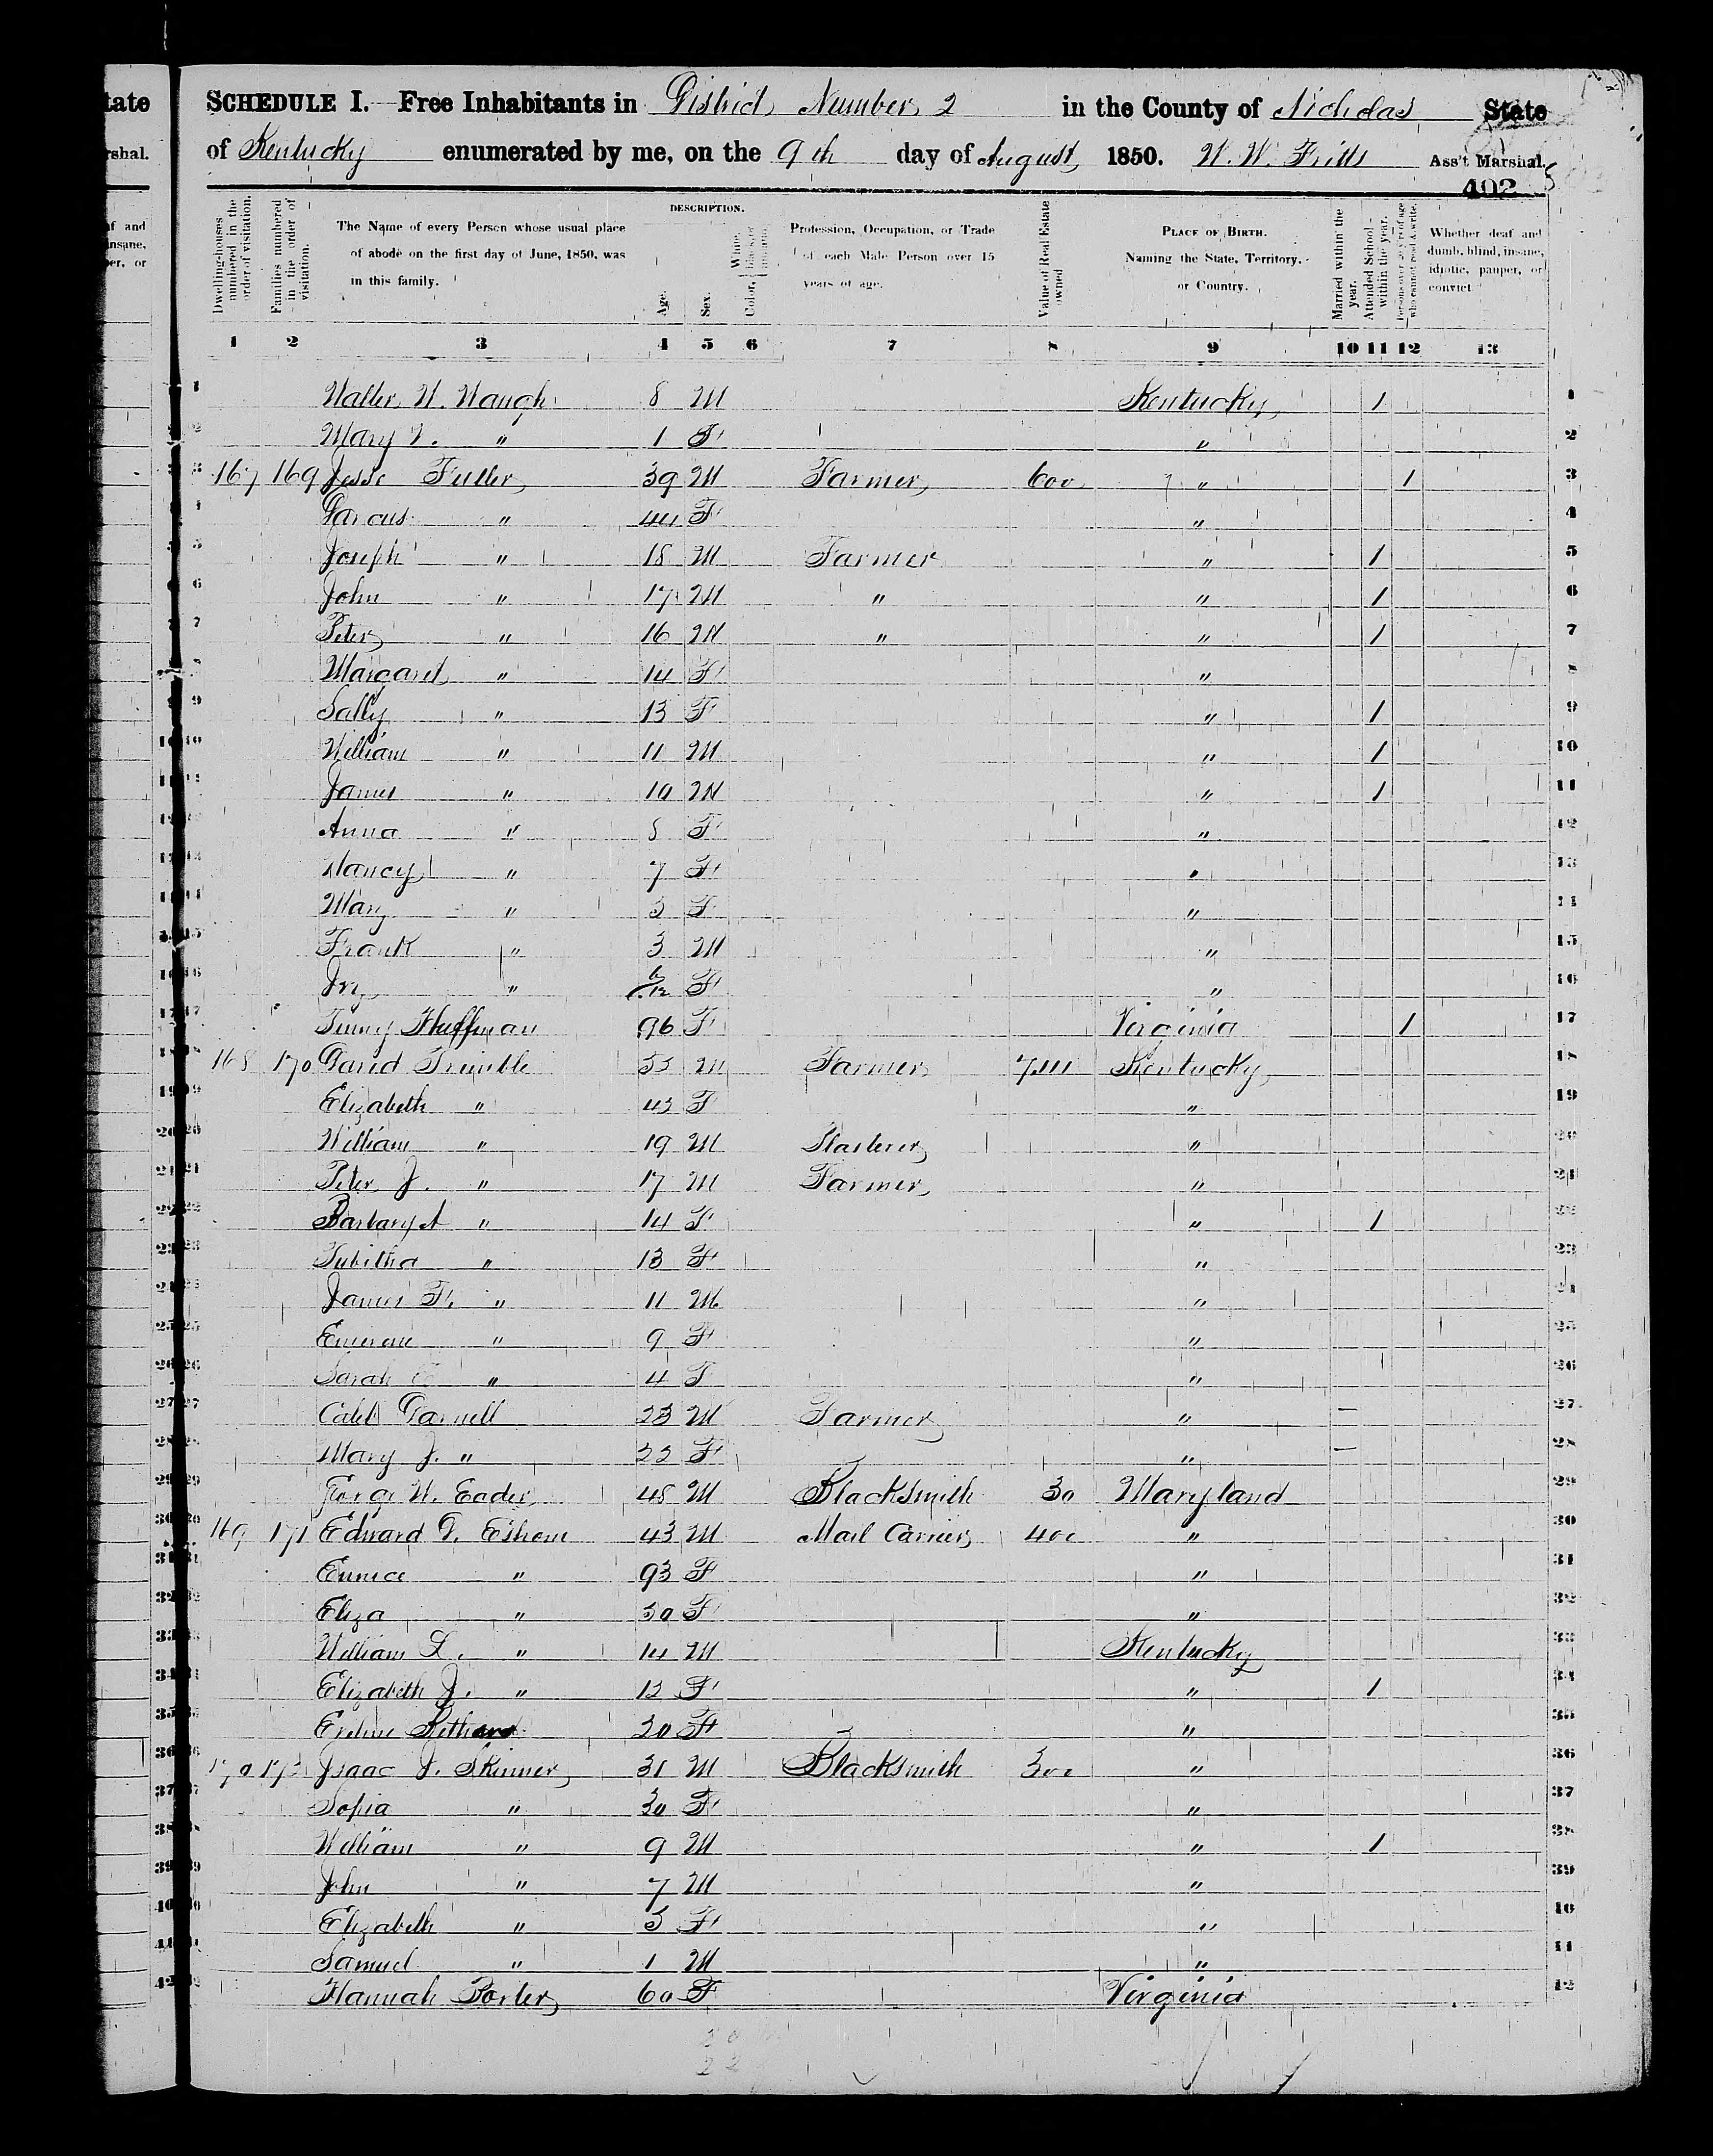 tate
rshal.
SCHEDULE I. Free Inhabitants in District Number 2 in the County of Nicholas State
of Kentucky enumerated by me, on the 9th day of August 1850. W. W. Fritts Ass't Marshal.
402
Dwelling-houses numbered in the order of visitation.
Families numbered in the order of visitation.
The Name of every Person whose usual place of abode on the first day of June, 1850, was in this family.
DESCRIPTION.
Age.
Sex.
Color, White, black, or mulatto.
Profession, Occupation, or Trade of each Male Person over 15 years of age.
Value of Real Estate owned
PLACE OF BIRTH. Naming the State, Territory, or Country.
Married within the year.
Attended School within the year.
Persons over 20 y'rs of age who cannot read & write.
Whether deaf and dumb, blind, insane, idiotic, pauper, or convict
1 2 3 4 5 6 7 8 9 10 11 12 13
1 Walter W. Waugh 8 M Kentucky 1 1
2 Mary " 1 F " 2
3 167 169 Jesse Fuller 39 M Farmer 600 " 1 3
4 Darcus " 44 F " 4
5 Joseph " 18 M Farmer " 1 5
6 John " 17 M " " 1 6
7 Peter " 16 M " " 1 7
8 Margaret " 14 F " 8
9 Sally " 13 F " 1 9
10 William " 11 M " 1 10
11 James " 10 M " 1 11
12 Anna " 8 F " 12
13 Nancy " 7 F " 13
14 Mary " 5 F " 14
15 Frank " 3 M " 15
16 Ivy " 6/12 F " 16
17 Huffman 96 F Virginia 1 17
18 168 170 David Trimble 53 M Farmer Kentucky 18
19 Elizabeth " 43 F " 19
20 William " 19 M Plasterer " 20
21 Peter J. " 17 M Farmer " 21
22 Barbary A " 14 F " 1 22
23 Tabitha " 13 F " 23
24 James F. " 11 M " 24
25 " 9 F " 25
26 Sarah " 4 F " 26
27 Caleb Darnell 23 M Farmer " — 27
28 Mary J. " 22 F " — 28
29 George W. Eader 48 M Blacksmith 30 Maryland 29
30 169 171 Edward Esham 43 M Mail Carrier 400 " 30
31 Eunice " 93 F " 31
32 Eliza " 30 F " 32
33 William L. " 14 M Kentucky 33
34 Elizabeth J. " 13 F " 1 34
35 Eveline 20 F " 35
36 170 172 Isaac J. Skinner 31 M Blacksmith 300 " 36
37 Sophia " 30 F " 37
38 William " 9 M " 1 38
39 John " 7 M " 39
40 Elizabeth " 5 F " 40
41 Samuel " 1 M " 41
42 Hannah Porter 60 F Virginia 42